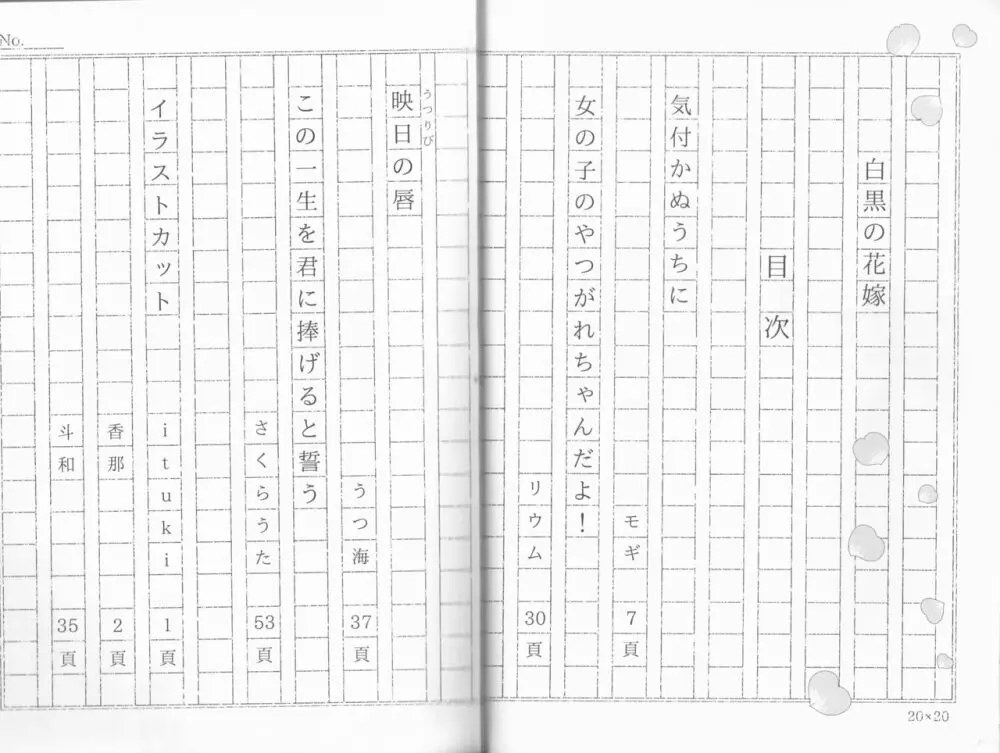 白黒の花嫁
目次
気付かぬうちに
モギ 7頁
女の子のやつがれちゃんだよ!
リウム 30頁
映日の唇
うつりび
うつ海 37頁
この一生を君に捧げると誓う
さくらうた 53頁
イラストカット
ituki 1頁
香那 2頁
斗和 35頁
No.
20×20